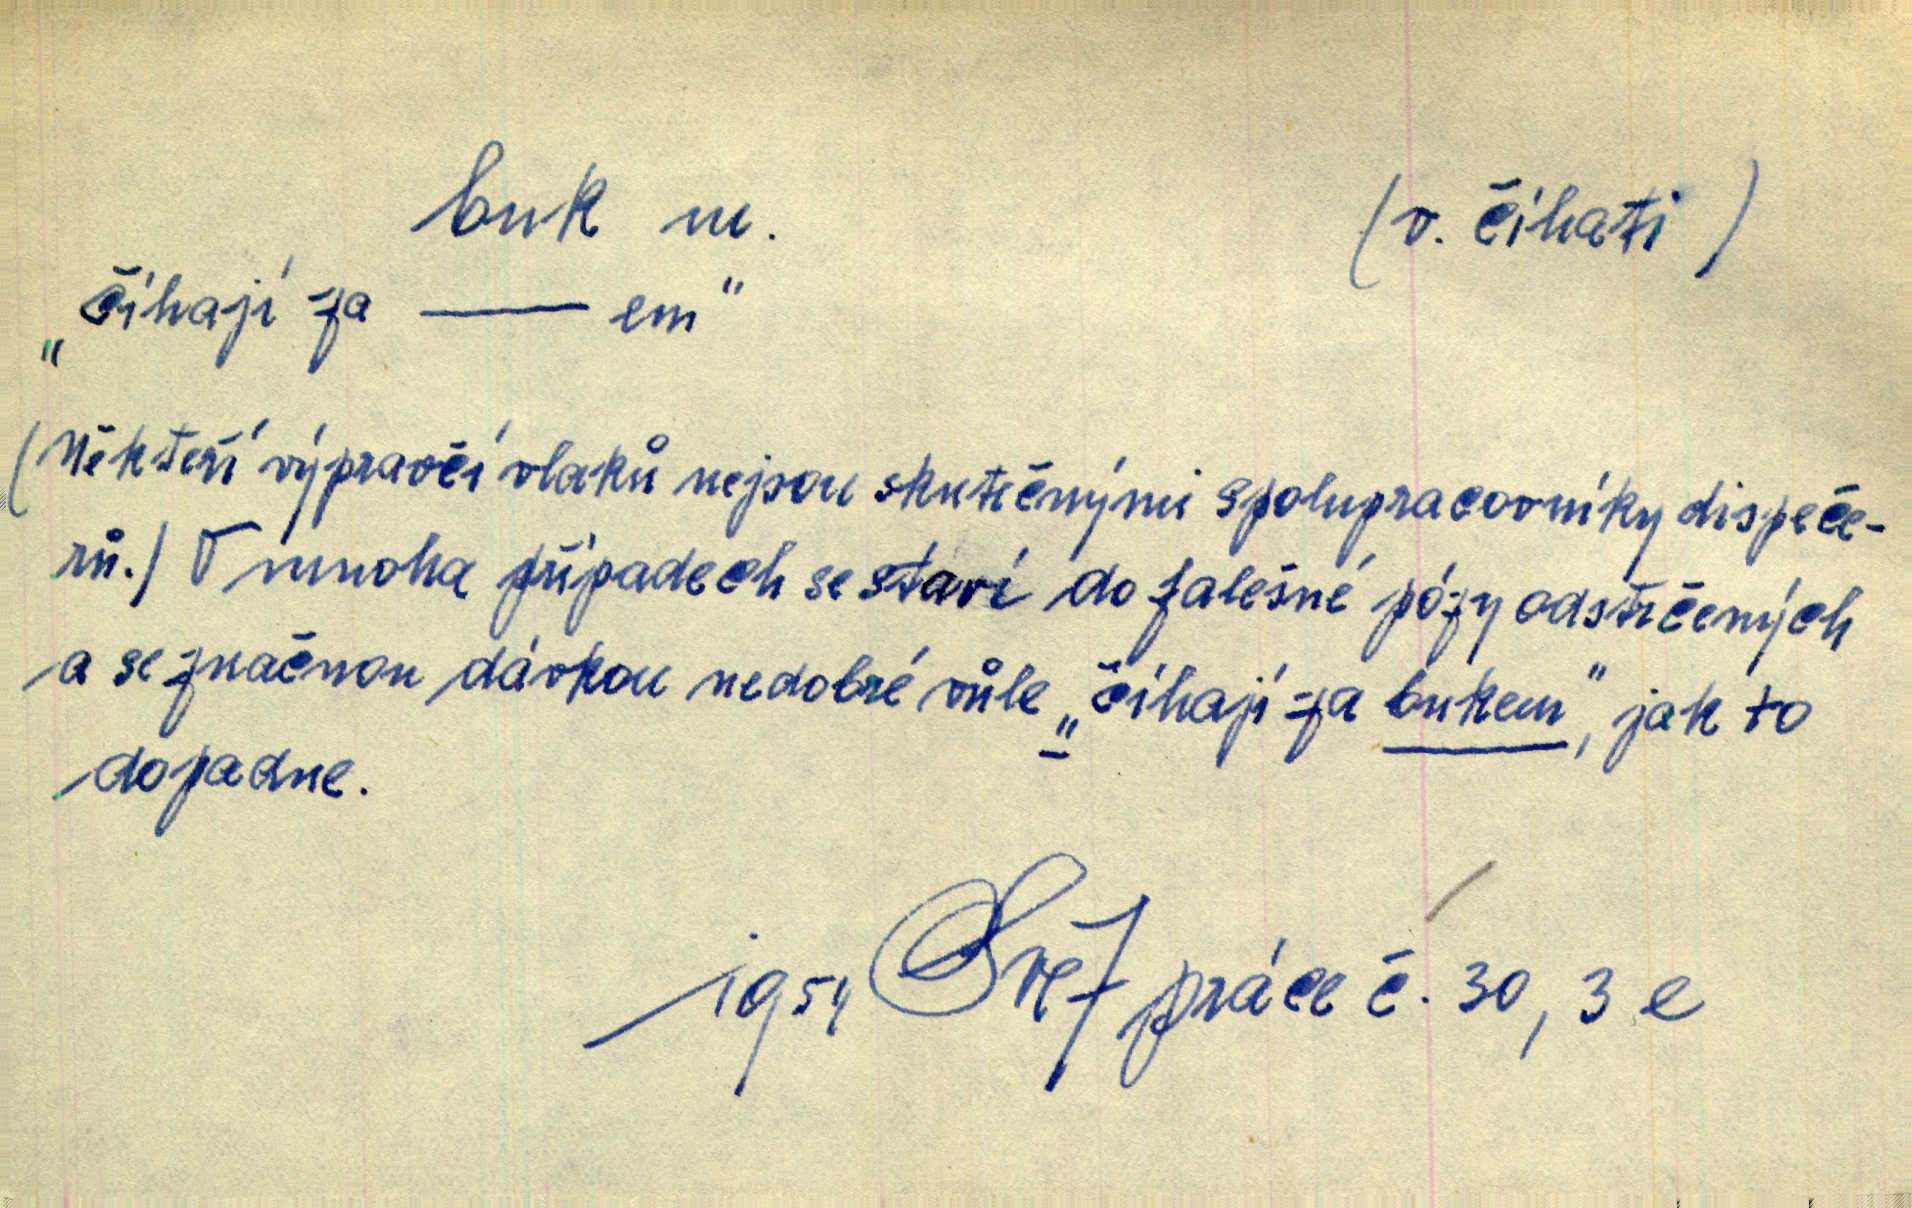 buk m. (v. číhati)
„číhají za —— em"
(Někteří výpravčí vlaků nejsou skutečnými spolupracovníky dispeče-
rů.) V mnoha případech se staví do falešné pózy odstrčených
a se značnou dávkou nedobré vůle „číhají za bukem", jak to
dopadne.
1954 Svět práce č. 30, 3 e